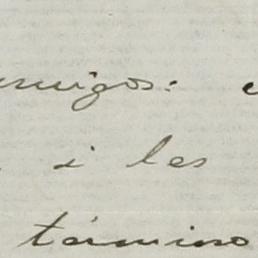 amigos:
i les
término